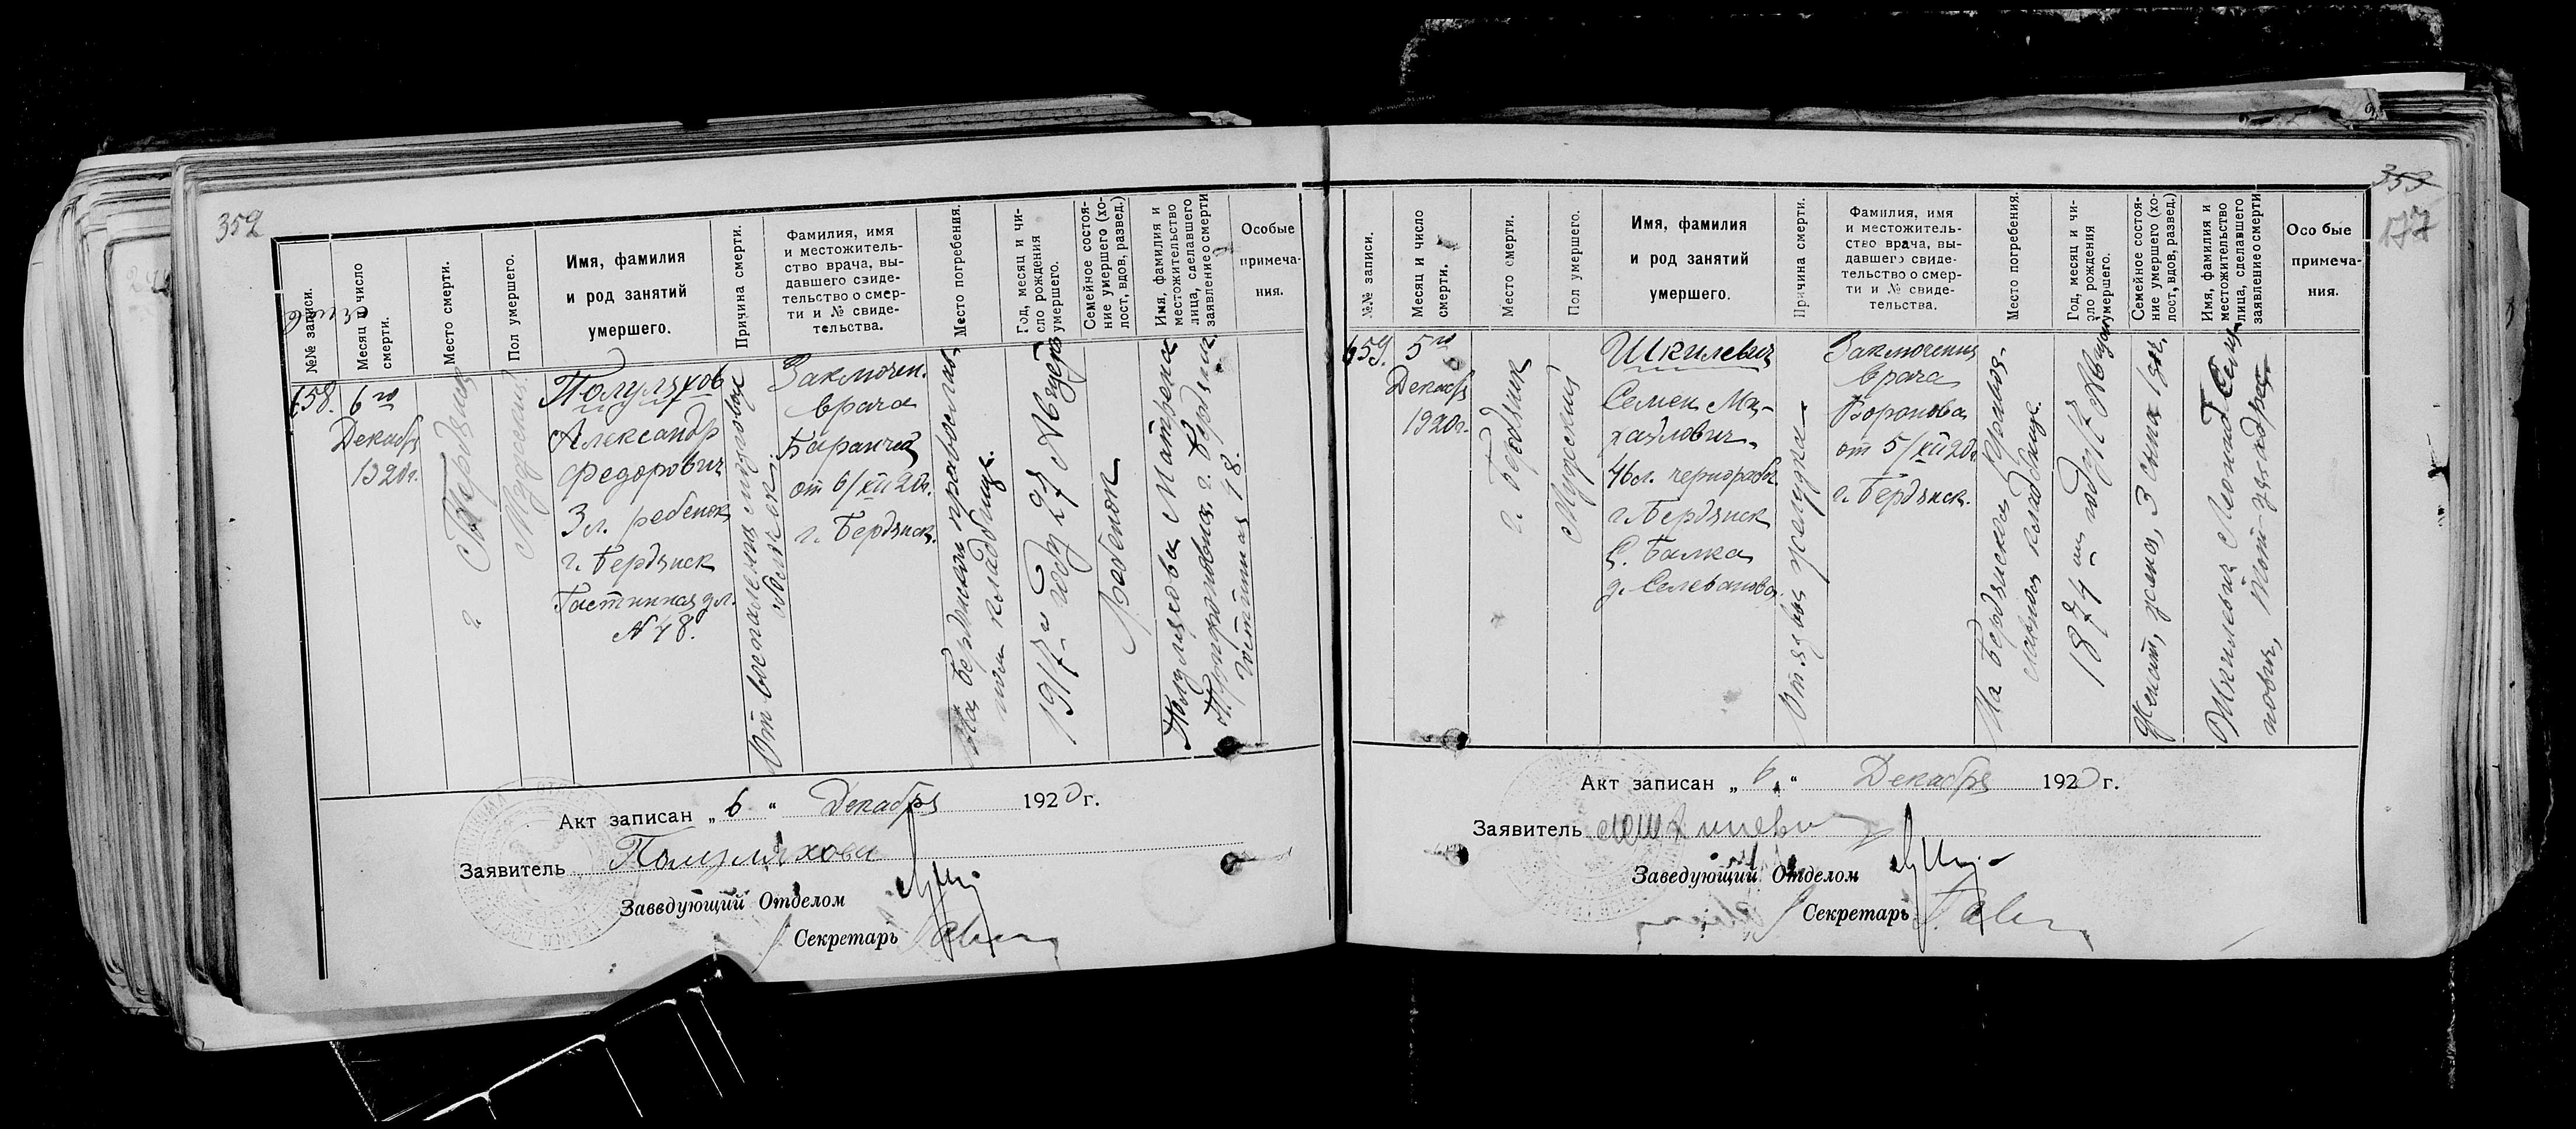 352
№№ записи.
Месяц и число
смерти.
Место смерти.
Пол умершего.
Имя, фамилия
и род занятий
умершего.
Причина смерти.
Фамилия, имя
и местожитель-
ство врача, вы-
давшего свиде-
тельство о смер-
ти и № свиде-
тельства.
Место погребения.
Год, месяц и чи-
сло рождения
умершего.
Семейное состоя-
ние умершего (хо-
лост, вдов, развед.)
Имя, фамилия и
местожительство
лица, сделавшего
заявление о смерти
Особые
примеча-
ния.
658.
6го
Декабр
1920г.
г. Бердянск
Мужский
Полуляхов
Александр
Федорович
3 л. ребенок
г. Бердянск
Гостинная ул.
№ 48.
От воспаления мозговой
оболочки.
Заключен.
врача
Баранчи
от 6/XII 20г.
г. Бердянск.
На Бердянском православ
ном кладбище.
1917 году
Ребенок
Полуляхова Матрена
г. Бердянск
Гостинная 48.
Акт записан „ 6 “ Декабря 1920 г.
Заявитель Полуляхова
Заведующий Отделом
Секретарь
353
177
№№ записи.
Месяц и число
смерти.
Место смерти.
Пол умершего.
Имя, фамилия
и род занятий
умершего.
Причина смерти.
Фамилия, имя
и местожитель-
ство врача, вы-
давшего свиде-
тельство о смер-
ти и № свиде-
тельства.
Место погребения.
Год, месяц и чи-
сло рождения
умершего.
Семейное состоя-
ние умершего (хо-
лост, вдов, развед.)
Имя, фамилия и
местожительство
лица, сделавшего
заявление о смерти
Особые
примеча-
ния.
659.
5го
Декабр
1920г.
г. Бердянск
Мужский
Шкилевич
Семен Ми-
хайлович
46 л. чернораб.
г. Бердянск
С. Балка
д. Селеванова
От язвы желудка
Заключения
врача
Воронова
от 5/XII 20г.
г. Бердянск.
На Бердянском правос-
лавном кладбище.
1874 году
Женат, жена, 3 сына
Шкилевич Леонид Семе-
нович, Тот-же адрес
Акт записан „ 6 “ Декабря 1920 г.
Заявитель Шкилевич
Заведующий Отделом
Секретарь